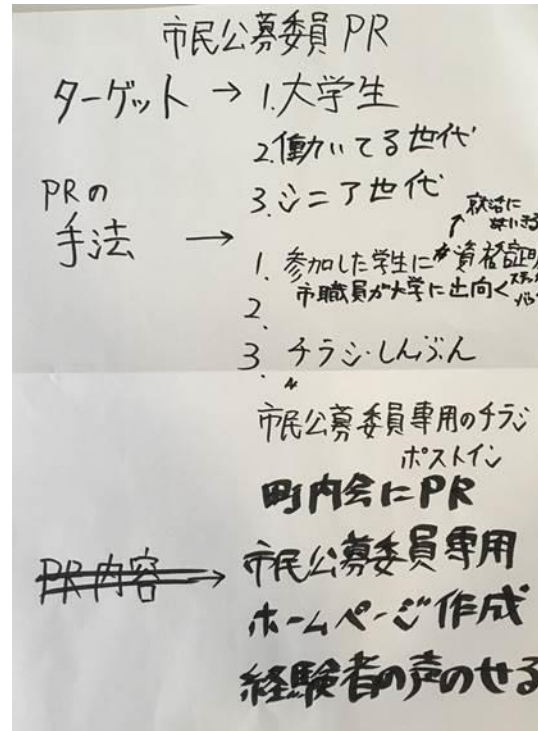 市民公募委員 PR
ターゲット → 1.大学生
2.働いてる世代
3.シニア世代
PRの
手法 →
就活に
1. 参加した学生に 資格証明
市職員が大学に出向く
2.
3. チラシ・しんぶん
市民公募委員専用のチラシ
ポストイン
町内会にPR
PR内容 → 市民公募委員専用
ホームページ作成
経験者の声のせる